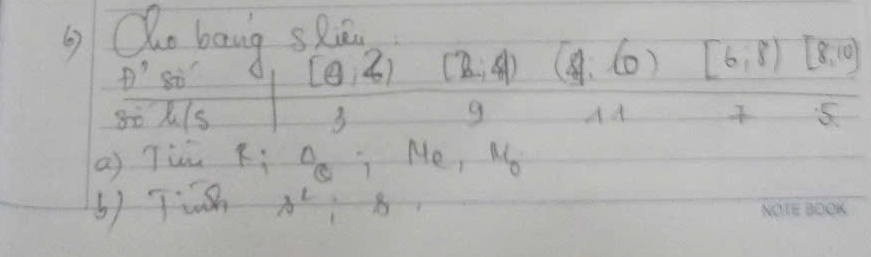 6) Cho bảng số liệu.
Đ' số [0;2) [2;4) [4;6) [6;8) [8;10)
số h/s 3 9 11 7 5
a) Tìm R; ΔQ; Me, Mo
b) Tính s²; s.
NOTE BOOK